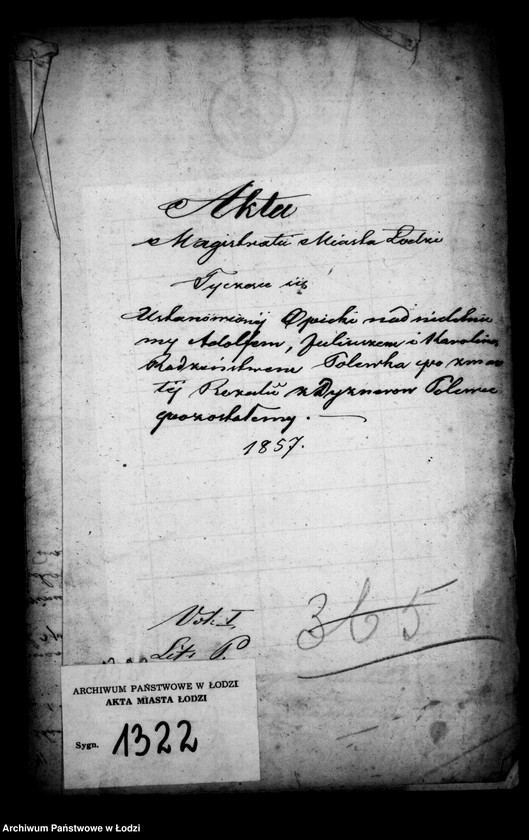 Akta
Magistratu Miasta Łodzi
Tyczące się
Ustanowionéj Opieki nad nieletnie
my Adolfem, Juliuszem i Karoliną
Rodzeństwem Polewka po zmar
téj Rozalii z Dyznerow Polewce
pozostałemy. —
1857.
Vol. I.
Lit. P.
365
ARCHIWUM PAŃSTWOWE W ŁODZI
AKTA MIASTA ŁODZI
Sygn. 1322
Archiwum Państwowe w Łodzi